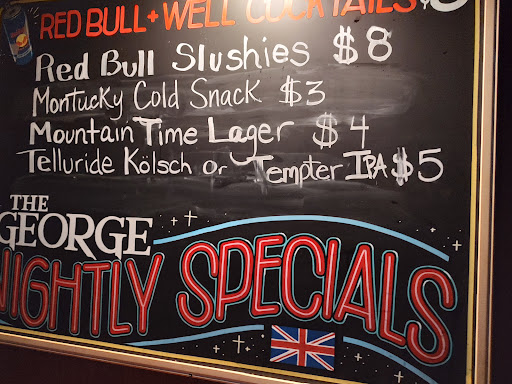 RED BULL + WELL COCKTAILS
Red Bull Slushies $8
Montucky Cold Snack $3
Mountain Time Lager $4
Telluride Kölsch or Tempter IPA $5
THE
GEORGE
NIGHTLY SPECIALS